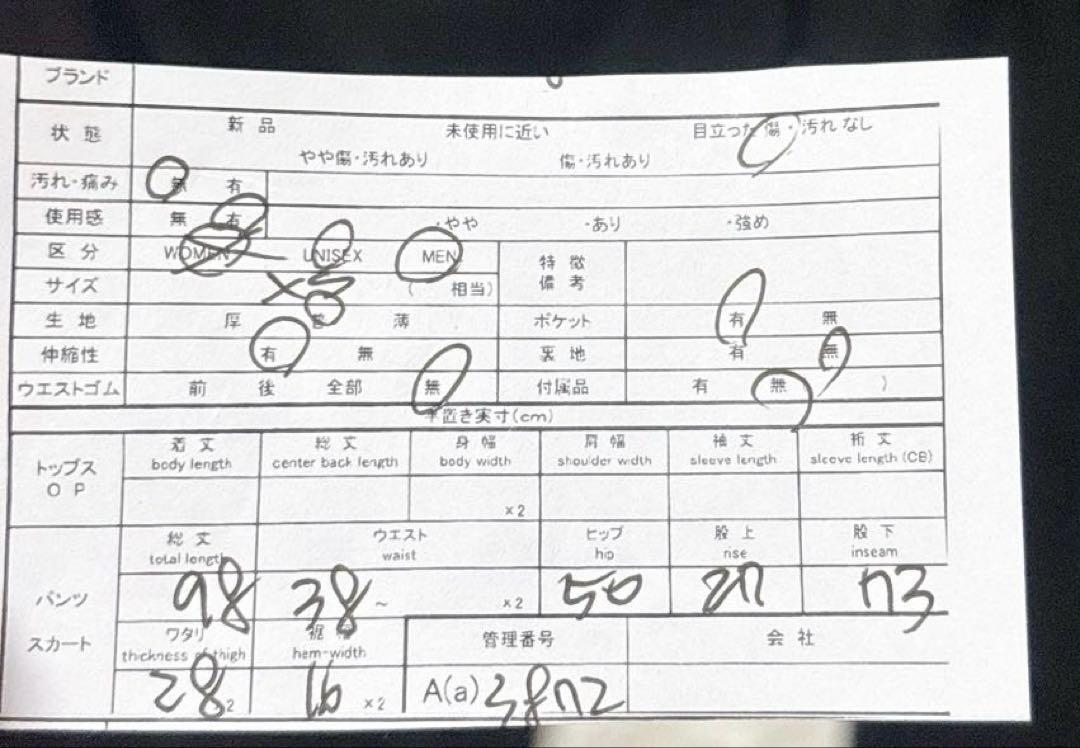 ブランド
状態 新品 未使用に近い 目立った傷・汚れなし
やや傷・汚れあり 傷・汚れあり
汚れ・痛み 無 有
使用感 無 有 ・やや ・あり ・強め
区分 WOMEN UNISEX MEN 特徴備考
サイズ ( 相当)
生地 厚 普 薄 ポケット 有 無
伸縮性 有 無 裏地 有 無
ウエストゴム 前 後 全部 無 付属品 有 無 )
平置き実寸(cm)
トップス OP 着丈 総丈 身幅 肩幅 袖丈 裄丈
body length center back length body width shoulder width sleeve length sleeve length (CB)
×2
総丈 ウエスト ヒップ 股上 股下
total length waist hip rise inseam
パンツ 98 38 ~ ×2 50 27 73
スカート ワタリ 裾幅 管理番号 会社
thickness of thigh hem-width
28 2 16 ×2 A(a) 3872